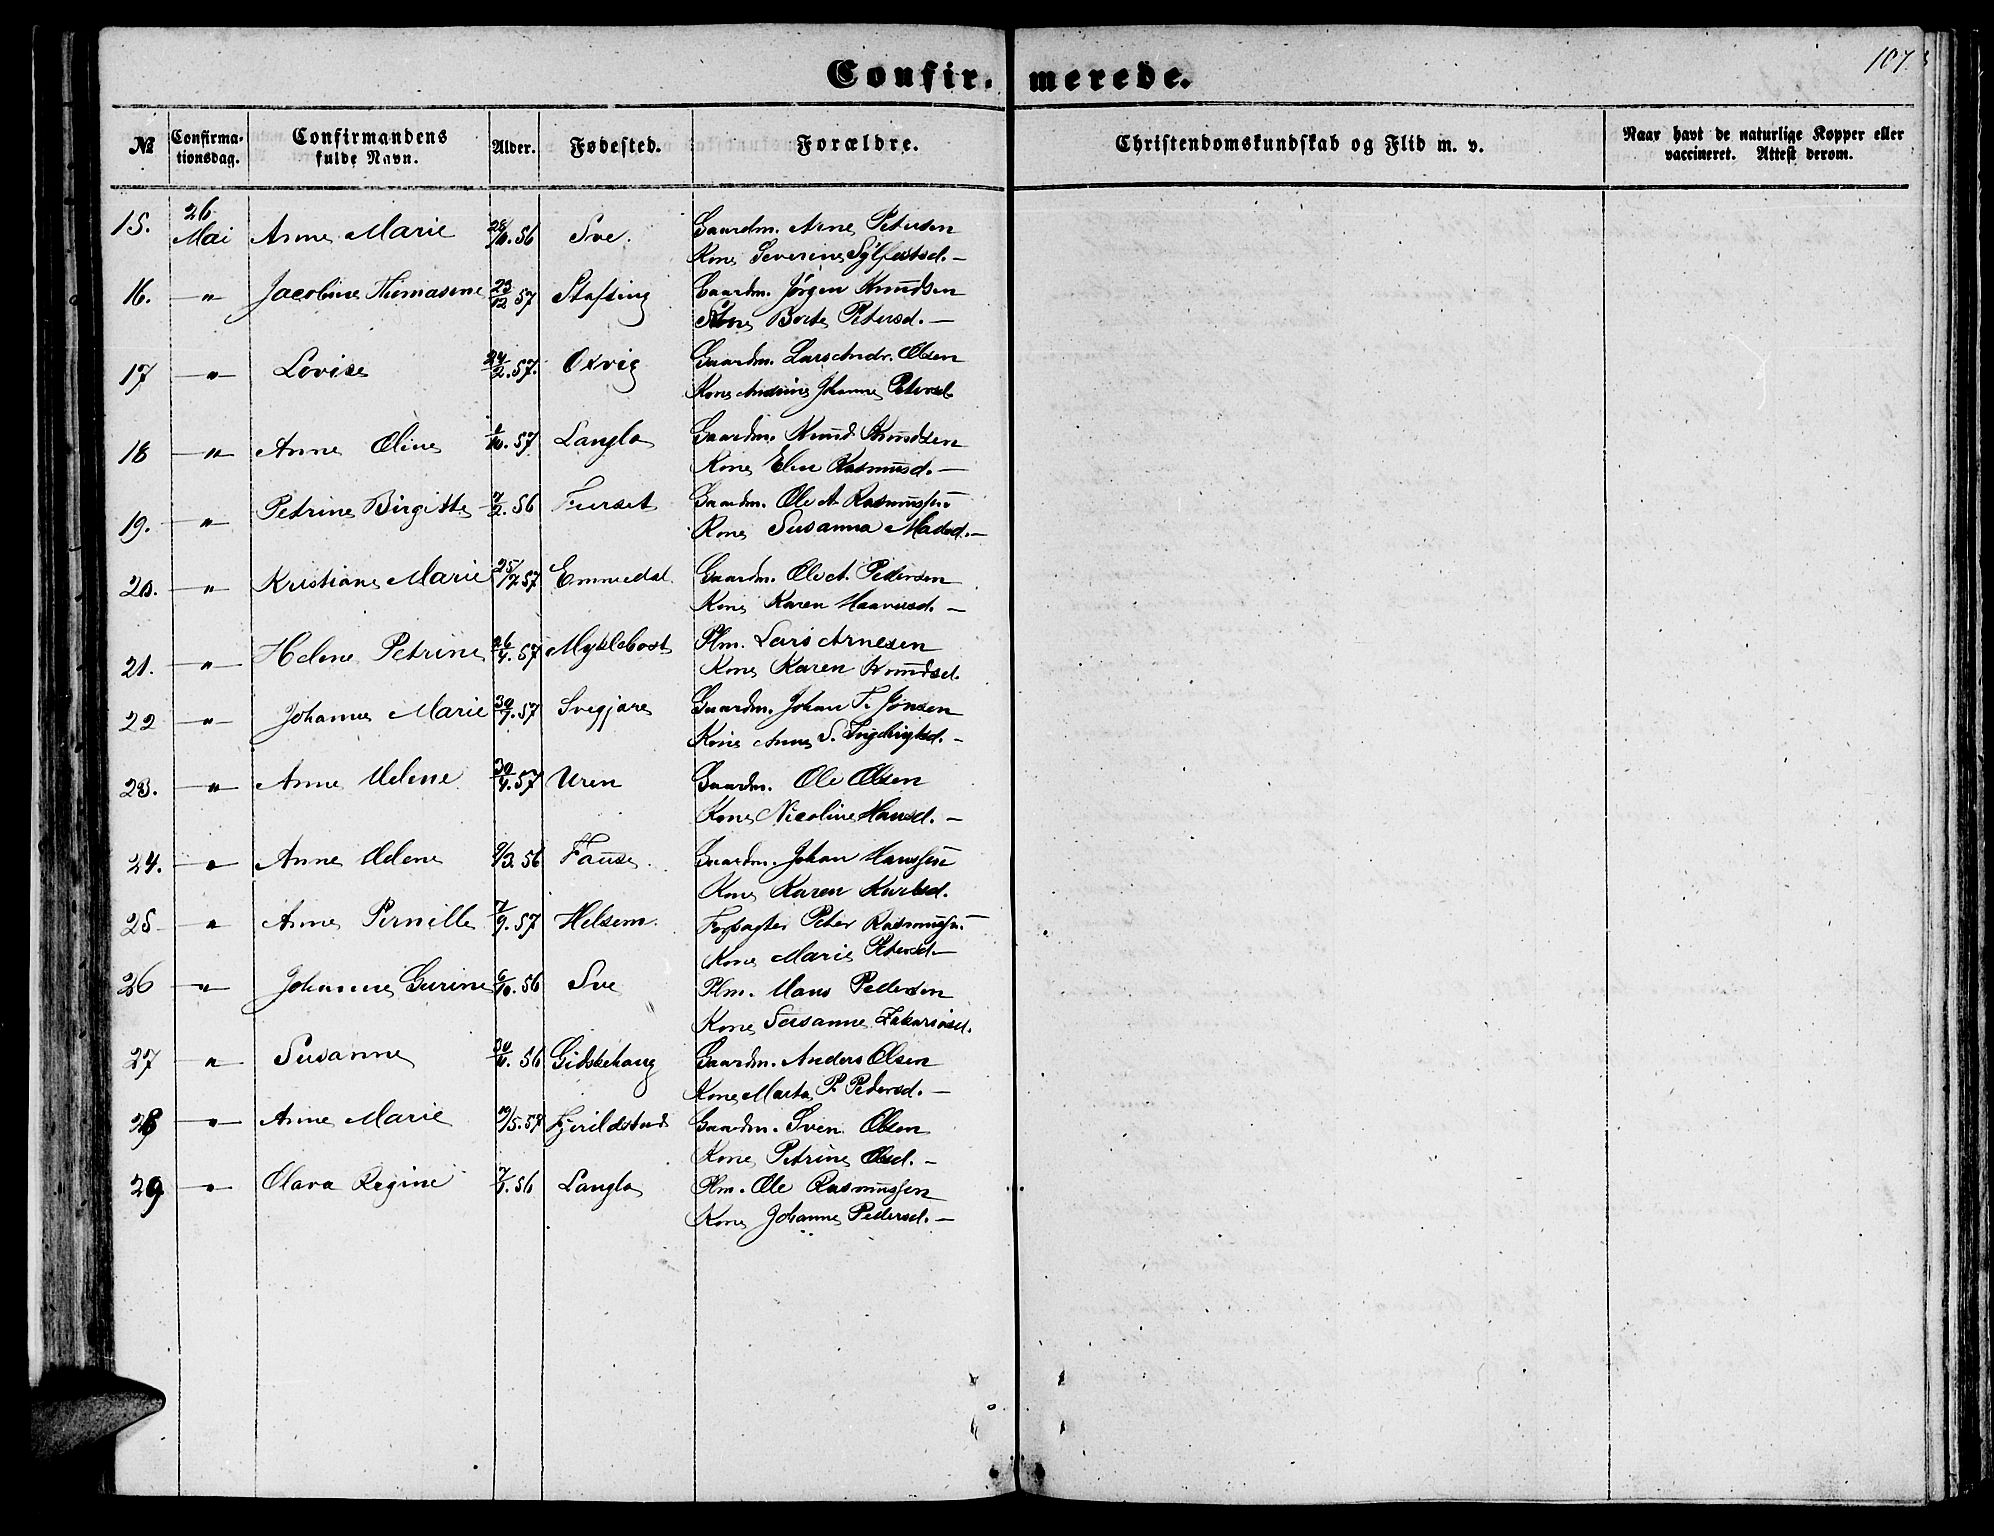 Confir. merede.
107.
№ Confirma-tionsdag. Confirmandens fulde Navn. Alder. Fødested. Forældre. Christendomskundskab og Flid m. v. Naar havt de naturlige Kopper eller vaccineret. Attest derom.
15. 26 Mai Anne Marie 28/10.56 Sve. Gaardm. Arne Petersen
Kone Severine Sylfestsd. —
16. —„— Jacobine Thomasine 23/12 57 Stafsing Gaardm. Jørgen Knudsen
Kone Berte Petersd. —
17 —„— Lovise 24/2.57. Oxvig Gaardm. Lars Andr. Olsen
Kone Andrine Johanne Petersd.
18 —„— Anne Oline 1/10.57 Langlo Gaardm. Knud Knudsen
Kone Elen Rasmusd. —
19. —„— Petrine Birgitte 7/2.56 Furset Gaardm. Ole A. Rasmussen
Kone Susanna Madsd. —
20. —„— Kristiane Marie 25/12 57 Emmedal. Gaardm. Ole A. Pedersen
Kone Karen Haaversd. —
21. —„— Helene Petrine 26/4.57 Myklebost Plm. Lars Arnesen
Kone Karen Knudsd.
22 —„— Johanne Marie 30/7.57 Svegjare Gaardm. Johan T. Jonsen
Kone Anne S. Ingebrigtsd. —
23. —„— Anne Helene 30/4.57 Uren Gaardm. Ole Olsen
Kone Nicoline Hansd. —
24. —„— Anne Helene 9/3.56 Fause. Gaardm. Johan Hanssen
Kone Karen Karlsd.
25 —„— Anne Pernille 7/9.57 Helsem. Forpagter Peter Rasmussen.
Kone Marie Petersd —
26 —„— Johanne Gurine 6/10.56 Sve Plm. Hans Pedersen
Kone Susanne Zakariasd.
27 —„— Susanne 56 Gidskehaug Gaardm. Anders Olsen
Kone Marta P. Pedersd. —
28 —„— Anne Marie 19/5.57 Fjorildstad Gaardm. Sven Olsen
Kone Petrine Olsd. —
29 —„— Olava Regine 56 Langlo Plm. Ole Rasmussen
Kone Johanne Pedersd. —